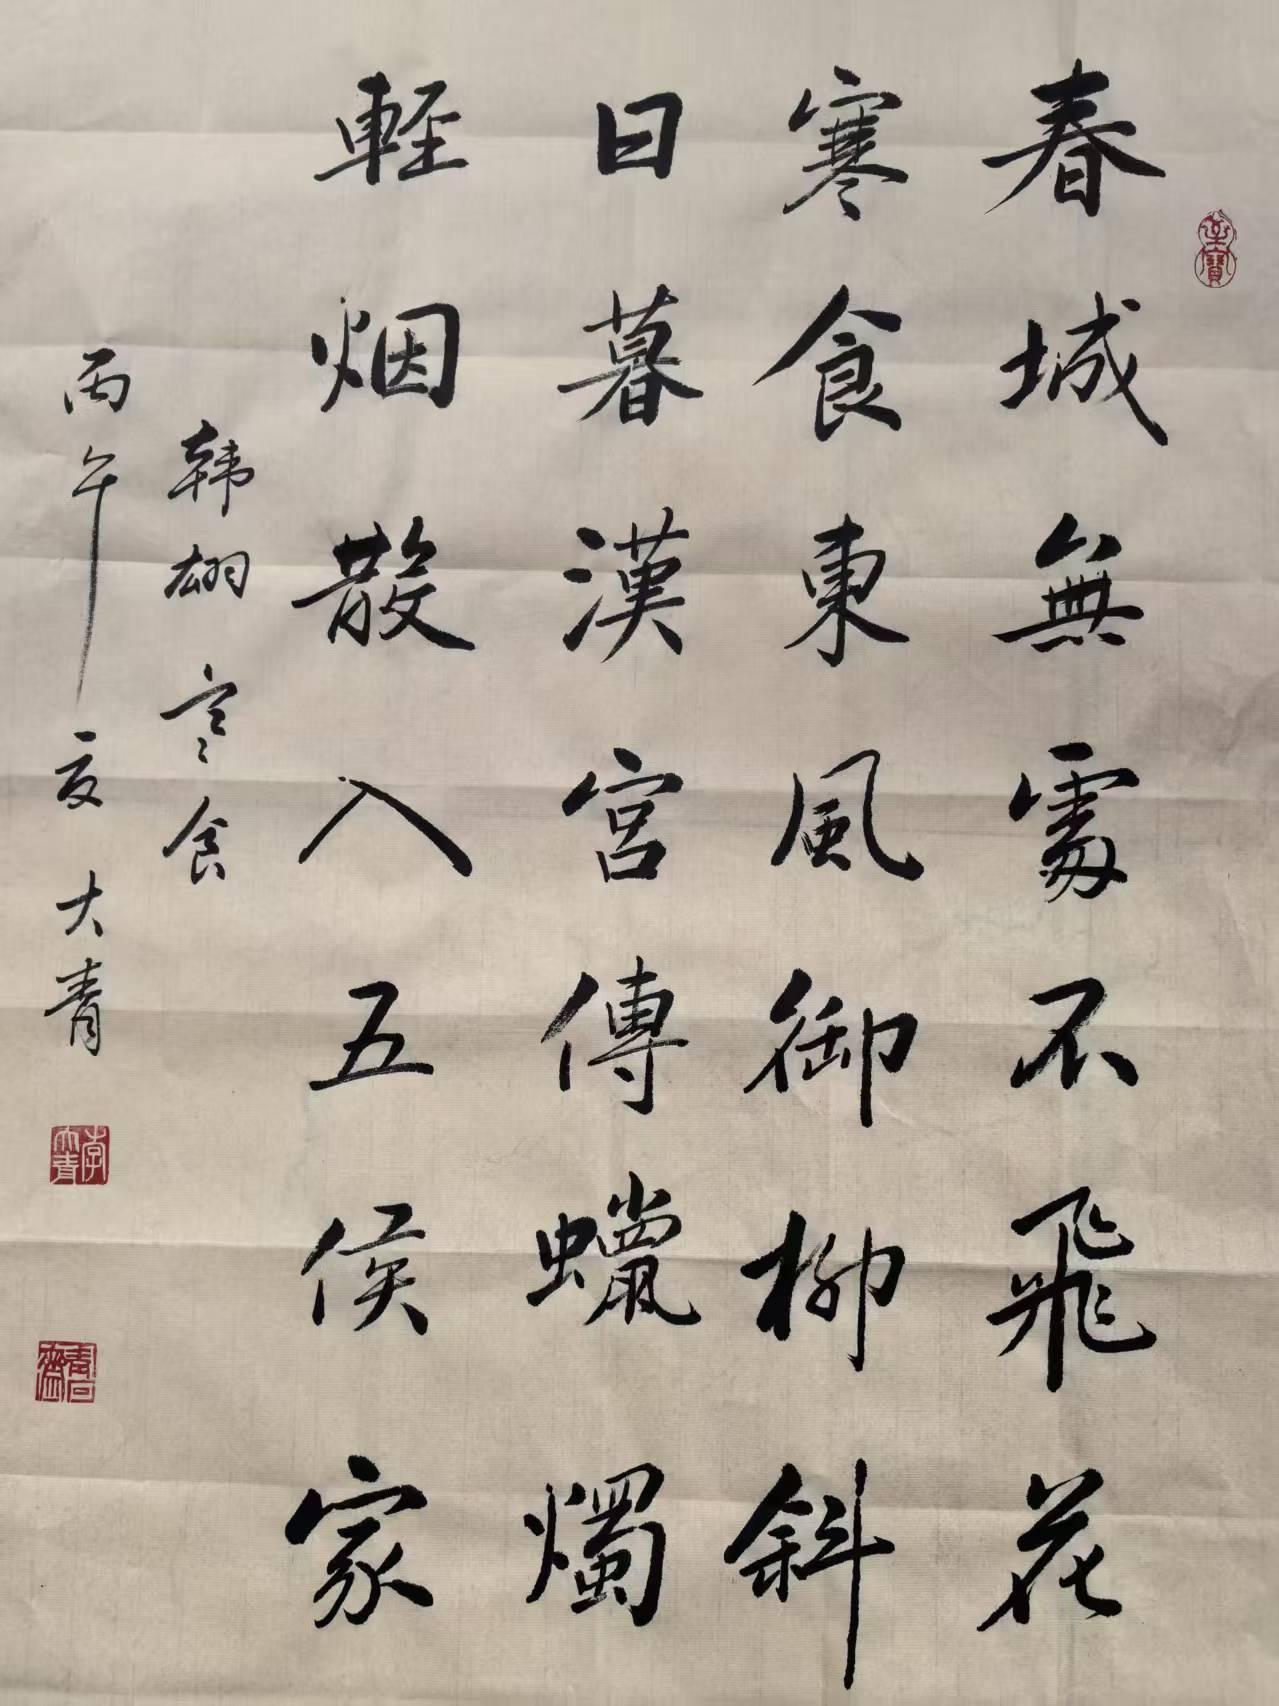 春城無處不飛花
寒食東風御柳斜
日暮漢宮傳蠟燭
輕烟散入五侯家
韩翃寒食
丙午夏大青
李大青